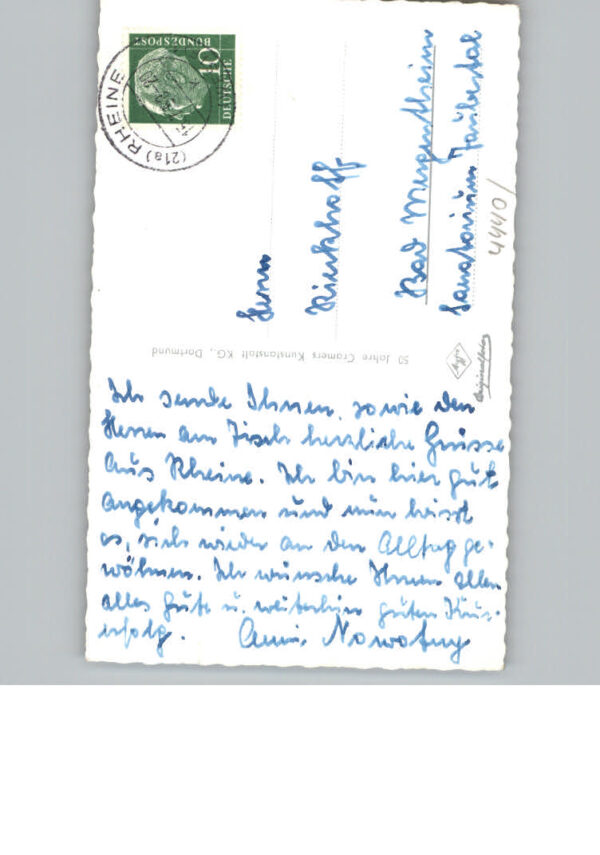 Ich sende Ihnen, sowie den
Herren am Tisch herzliche Grüsse
aus Rheine. Ich bin hier gut
angekommen und nun heisst
es, sich wieder an den Alltag ge-
wöhnen. Ich wünsche Ihnen allen
alles Gute u. weiterhin guten Kur-
erfolg. Nowotny
Herrn
Kirchhoff
Bad Mergentheim
Sanatorium Taubertal
4440/
50 Jahre Cramers Kunstanstalt KG., Dortmund
Agfa
Originalfoto
DEUTSCHE
BUNDESPOST
10
(21a) RHEINE